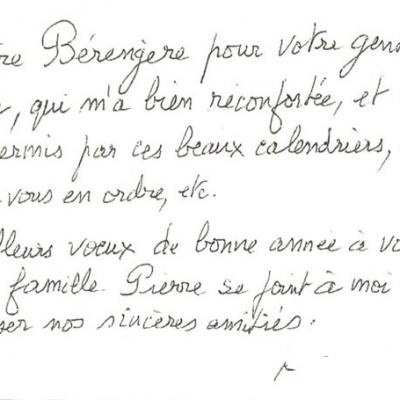 re Bérengère pour votre gen
, qui m'a bien réconfortée, et
ermis par ces beaux calendriers,
vous en ordre, etc.
lleurs voeux de bonne année à vo
famille. Pierre se joint à moi
ser nos sincères amitiés.